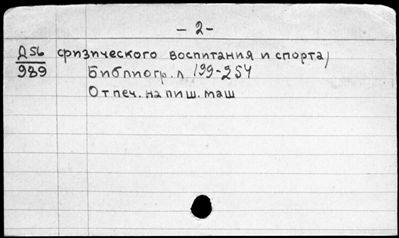 - 2-
Д56 физического воспитания и спорта)
989 Библиогр. л 199-254
Отпеч. на пиш. маш